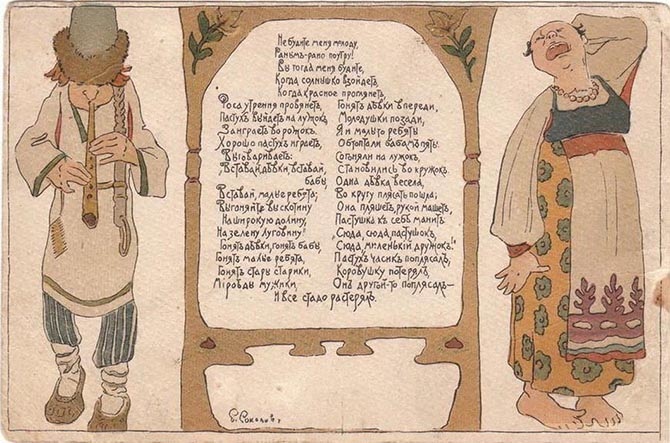 Не будите меня молоду,
Раным-рано поутру!
Вы тогда меня будите,
Когда солнышко взойдетъ,
Когда красное проглянетъ,
Роса утрення провянетъ,
Пастухъ выйдетъ на лужокъ,
Заиграетъ во рожокъ.
Хорошо пастухъ играетъ,
Выговариваетъ:
"Вставай дѣвки, вставай,
бабы,
Вставай, малые ребята;
Выгоняйте вы скотину
На широкую долину,
На зелену луговину!
Гонятъ дѣвки, гонятъ бабы,
Гонятъ малые ребята,
Гонятъ стары старики,
Міроѣды мужики,
Гонятъ дѣвки впереди,
Молодушки позади,
А и малые ребята
Обтоптали бабамъ пяты.
Согоняли на лужок,
Становились во кружокъ.
Одна дѣвка весела,
Во кругу плясать пошла;
Она пляшетъ, рукой машетъ,
Пастушка къ себѣ манитъ
"Сюда, сюда, пастушок,
"Сюда, миленькій дружокъ!"
Пастухъ часикъ поплясалъ,
Коровушку потерялъ,
Она другой-то поплясалъ—
И все стадо растерялъ.
Соколовъ